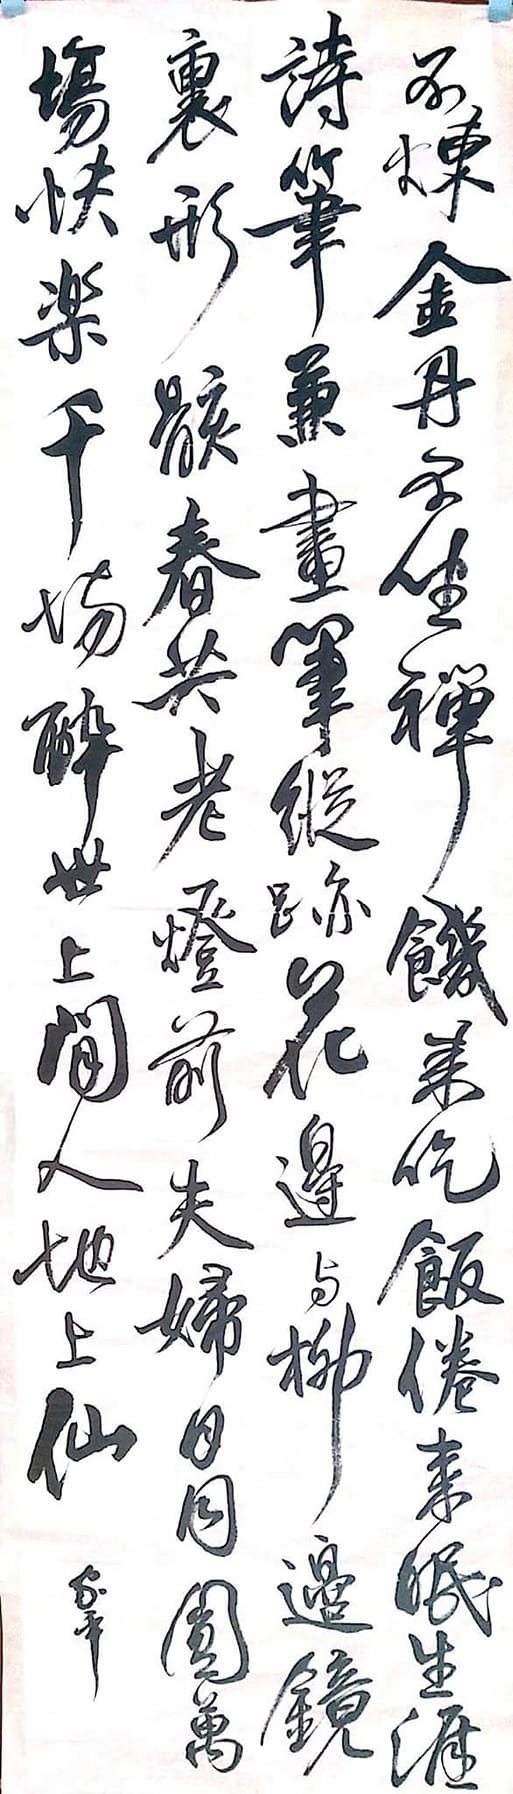 不煉金丹不坐禪饑来吃飯倦来眠生涯
詩筆兼畫筆縱跡花邊与柳邊鏡
裏形骸春共老燈前夫婦月同圓萬
場快楽千場醉世上閒人地上仙